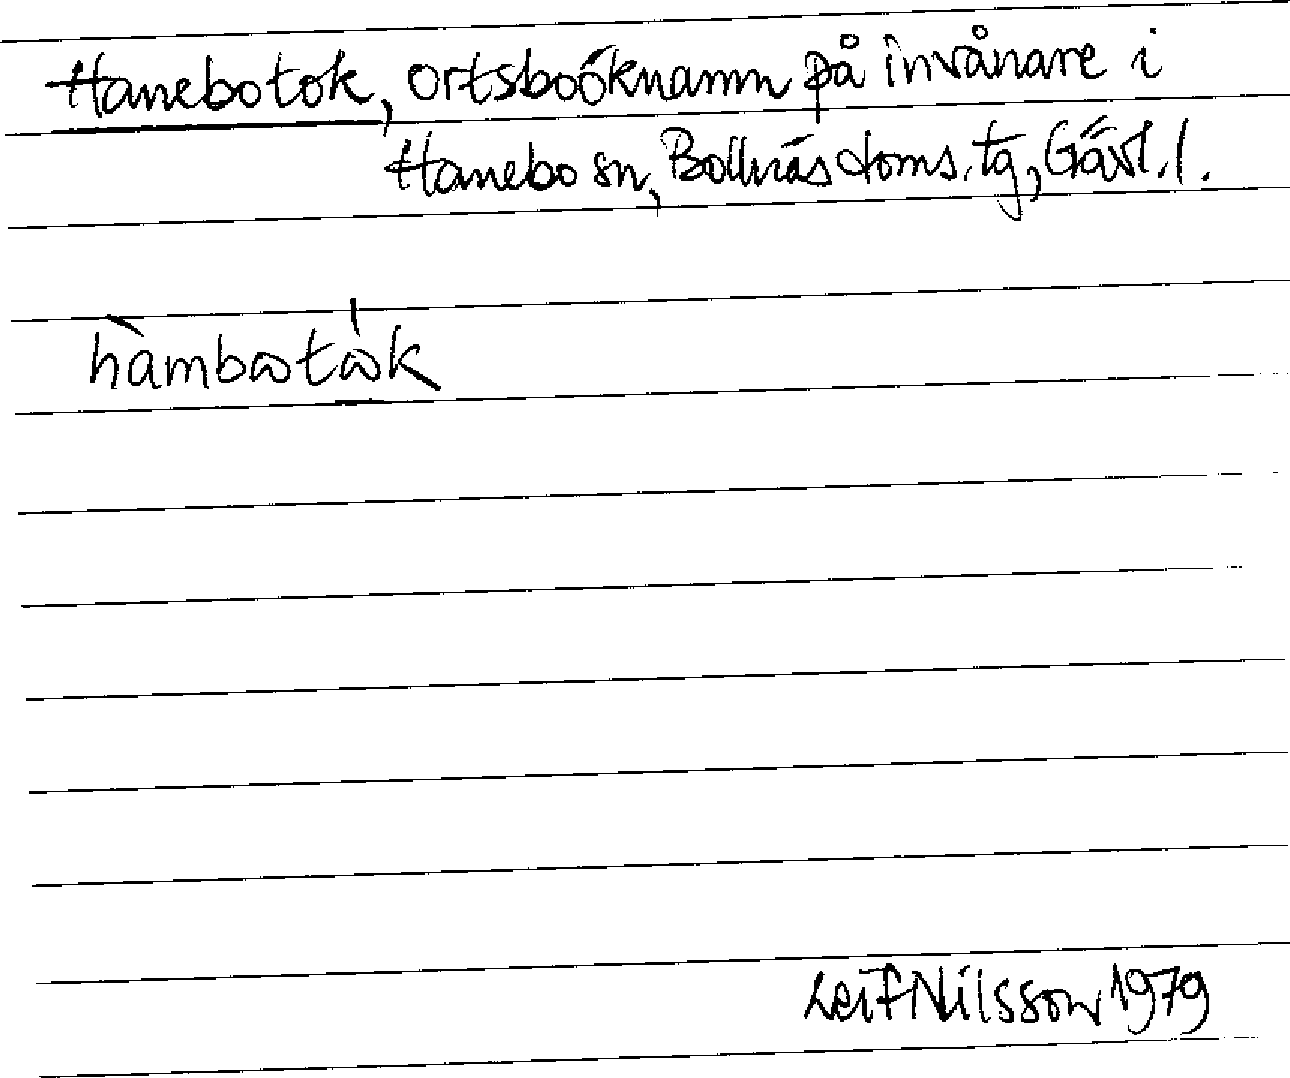 Hanebotok, ortsboöknamn på invånare i
Hanebo sn, Bollnäs doms.tg, Gävl.l.
hàmbⱺtⱺ̀k
Leif Nilsson 1979